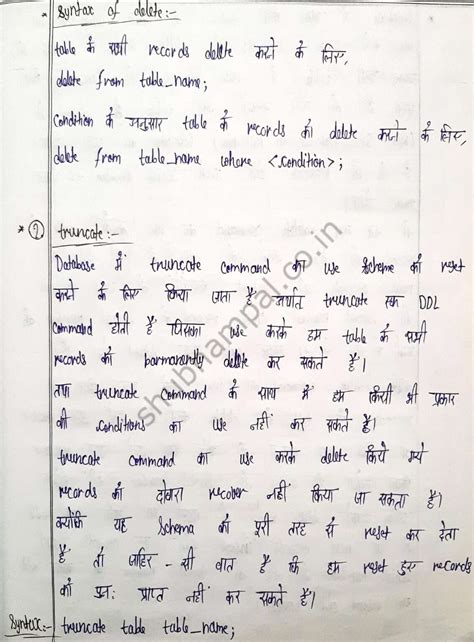 * Syntax of delete:-
table के सभी records delete करने के लिए,
delete from table_name;
Condition के अनुसार table के records को delete करने के लिए,
delete from table_name where <condition>;
* 2 truncate:-
Database में truncate command का use schema को reset
करने के लिए किया जाता है अर्थात truncate एक DDL
command होती है जिसका use करके हम table के सभी
records को parmanently delete कर सकते हैं।
तथा truncate command के साथ में हम किसी भी प्रकार
की conditions का use नहीं कर सकते हैं।
truncate command का use करके delete किये गये
records को दोबारा recover नहीं किया जा सकता है।
क्योंकि यह schema को पूरी तरह से reset कर देता
है तो जाहिर-सी वात है कि हम reset हुए records
को पुनः प्राप्त नहीं कर सकते हैं।
Syntax:- truncate table table_name;
shubhampal.co.in